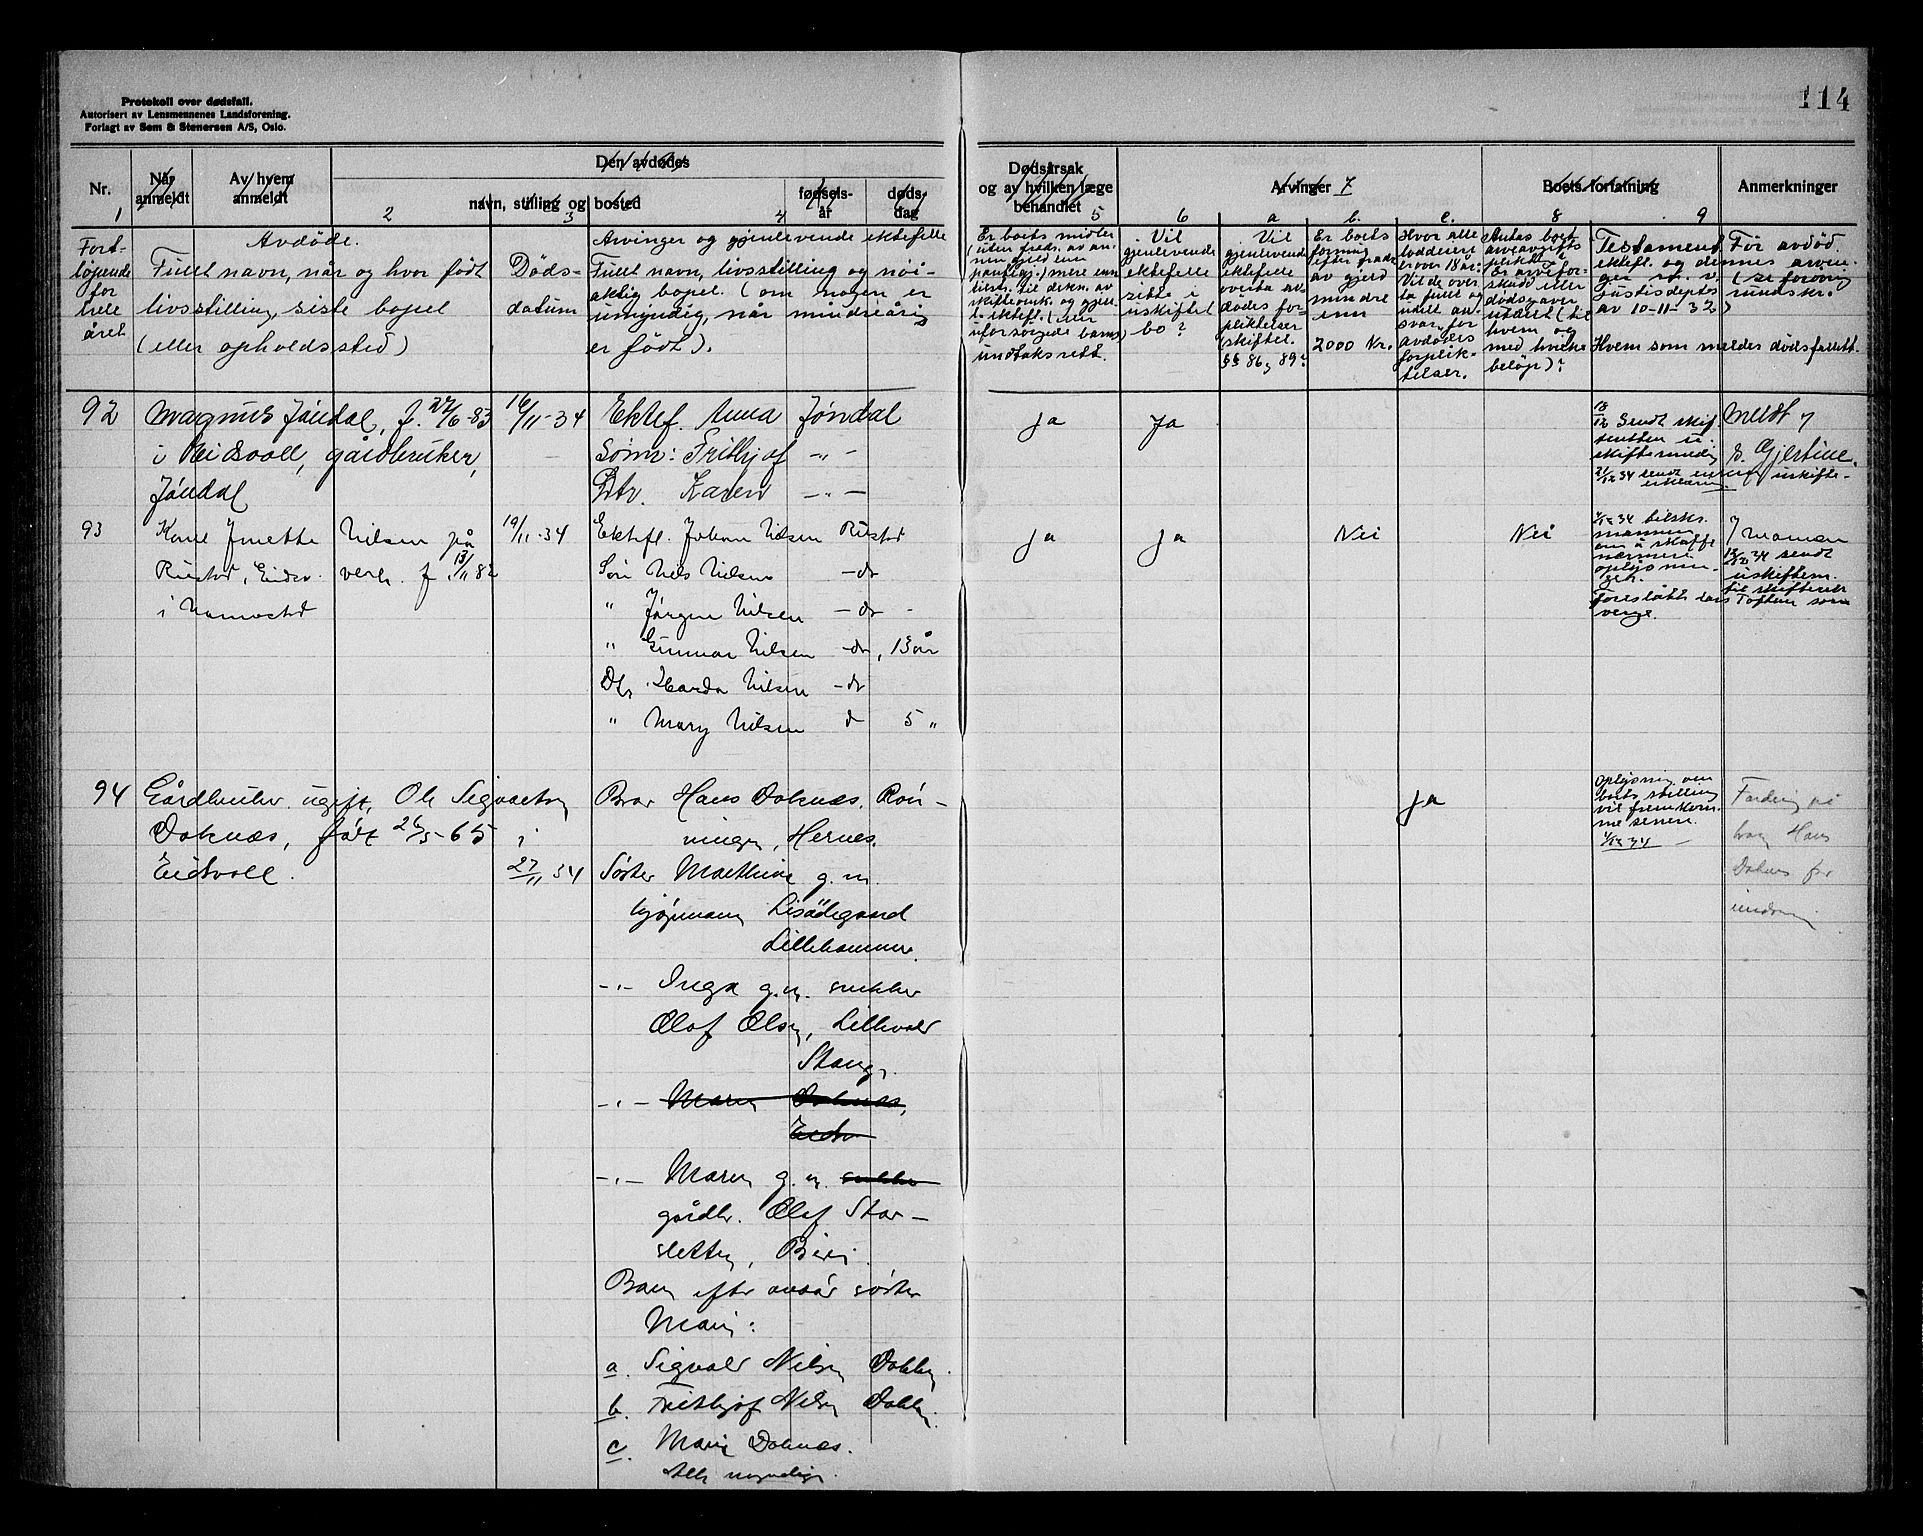 Protokoll over dødsfall.
Autorisert av Lensmennenes Landsforening.
Forlagt av Sem & Stenersen A/S, Oslo.
114
Nr.
Når anmeldt
Av hvem anmeldt
Den avdødes
navn, stilling og bosted
fødsels-år
døds-dag
Dødsårsak
og av hvilken læge
behandlet
Arvinger 7
Boets forfatning
Anmerkninger
1 2 3 4 5 6 a b. c. 8 9
Fort-
løpende
for
hele
året
Avdøde.
Fullt navn, når og hvor født
livsstilling, siste bopel
(eller opholdssted)
Døds-
datum
Arvinger og gjenlevende ektefelle
Fullt navn, livsstilling og nøi-
aktig bopel. (om nogen er
umyndig, når mindreårig
er født).
Er boets midler
undtaksrett.
Vil
gjenlevende
ektefelle
sitte i
uskiftet
bo?
Vil
gjenlevende
ektefelle
overta av-
dødes for-
pliktelser
(skiftel.
§§ 86, 89?
Er boets
formue
efter fradr.
av gjeld
mindre
enn
2000 kr.
Hvor alle
loddeiere
er over 18 år:
Vil de over-
ta fullt og
udelt an-
svar for
avdødes
forplik-
telser.
Antas boet
arveavgifts
pliktig?
Er arvefor-
skudd eller
dødsgaver
utdelt (til
hvem og
med hvilke
beløp)?
Testament,
ektefl. og dennes arvin-
ger
justisdeptes
av 10-11-32)
Hvem som melder dødsfallet.
For avdød.
rundskr.
92
Magnus Jøndal, f. 27/6-83
i Eidsvoll, gårdbruker,
Jøndal
16/11-34
Ektef. Anna Jøndal
Sønn: Frithjof -"-
Dtr. Karen -"-
Ja
Ja
18/12 Sendt skif-
teretten u.
skiftemelding
21/12 34 sendt
Meldt 7
Gjestine
uskifte-
93
Kone Jenette Nilsen på
Rustad, Eidsv. verk. f. 13/11 82
i Nannestad
19/11-34
Ektefl. Johan Nilsen Rustad
Søn Nils Nilsen -do
" Jørgen Nilsen -do-
" Gunnar Nilsen -do, 13 år
Dtr. Harda Nilsen -do
" Mary Nilsen d 5 "
Ja
Ja
Nei
Nei
mannen
om å skaffe
nærmere
oplysnin-
ger.
Foreslått Lars Toften som
verge.
7 Mannen
sendt
uskiftem.
til skifterett
94
Gårdbruker ugift, Ole Sigvartsen
Doknæs, født 26/5-65 i
Eidsvoll.
27/11 34
Bror Hans Doknæs, Røn-
ningen, Hernes.
Søster Mathine g.m.
kjøpmann Lisødegaard
Lillehammer.
-"- Inga g.m. snekker
Olaf Olsen, Lillevold
Stange.
-"- Maren Doknæs,
Eidsv.
-"- Maren g.m. snekker
gårdbr. Olaf Stor-
sletten, Biri.
Barn efter avdøde søster
Marie:
a. Sigvald Nilsen Dokken.
b. Frithjof Nilsen Dokken.
c. Marie Doknæs.
Alle myndige.
Ja
Oplysning om
boets stilling
vil fremkom-
me senere.
1/12 34
Fordring på
Hans
Doknes for